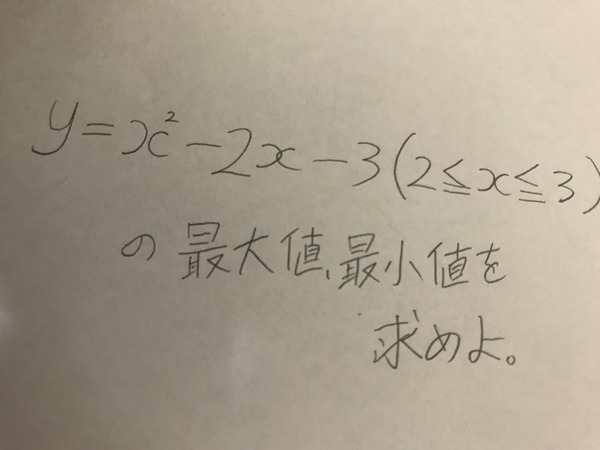 y=x²-2x-3(2≦x≦3)
の最大値、最小値を
求めよ。